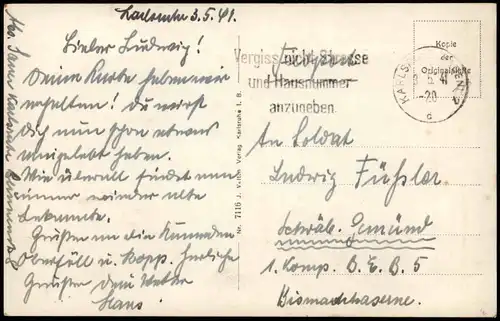 Karlsruhe 3.5.41.
Lieber Ludwig!
Deine Karte haben wir
erhalten! Du wirst
Dich nun schon etwas
eingelebt haben.
Wie überall findet man
immer wieder alte
Bekannte.
Grüßen an die Kameraden
Oberfüll u. Kopp. Herzliche
Grüßen Dein Vetter
Hans
Feldpost
Vergiss nicht Strasse
und Hausnummer
anzugeben
Kopie
der
Originalseite
KARLS
-20
d
An Soldat
Ludwig Füßler.
Schwäb. Gmünd
1. Komp. B.E.B. 5
Bismarckkaserne.
Nr. 7116 J. Verlag Karlsruhe i. B.
Karlsruhe